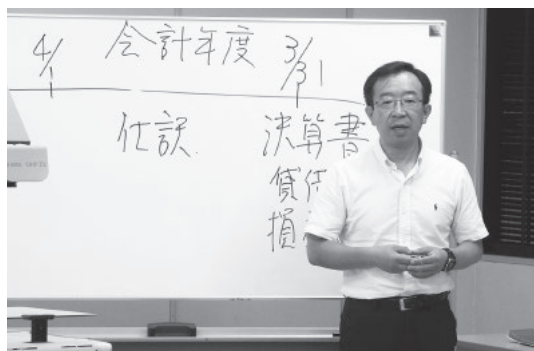 4/1 会計年度 3/31
仕訳 決算書
貸借
損